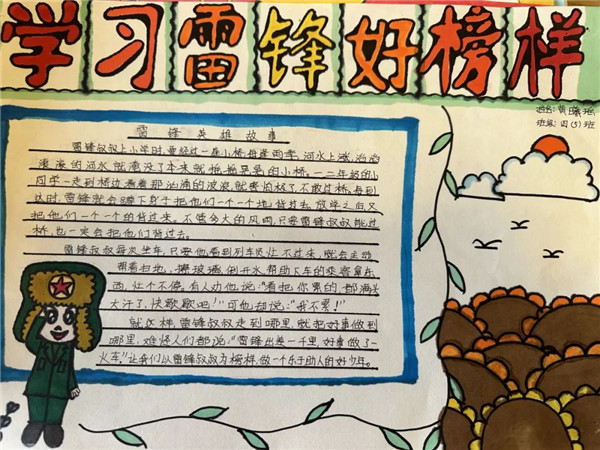 学习雷锋好榜样
姓名:黄曦瑶
班级:四(5)班
雷锋英雄故事
雷锋叔叔上小学时,要经过一座小桥每逢雨季,河水上涨,滔滔
滚滚的河水就淹没了本来就摇摇晃晃的小桥。一二年级的小
同学一走到桥边,看着那汹涌的波浪,就害怕极了,不敢过桥,每到
这时,雷锋就会蹲下身子把他们一个一个地背过去,放学之后又
把他们一个一个的背过来。不管多大的风雨,只要雷锋叔叔能过
桥,也一定会把他们背过去。
雷锋叔叔每次坐车,只要他看到列车员忙不过来,就会主动
帮着扫地,擦玻璃,倒开水,帮助下车的乘客拿东
西,忙个不停,有人劝他说:"看把你累的都满头
大汗了,快歇歇吧!"可他却说:"我不累!"
就这样,雷锋叔叔走到哪里,就把好事做到
哪里,难怪人们都说:"雷锋出差一千里,好事做了一
火车,"让我们以雷锋叔叔为榜样,做一个乐于助人的好少年。